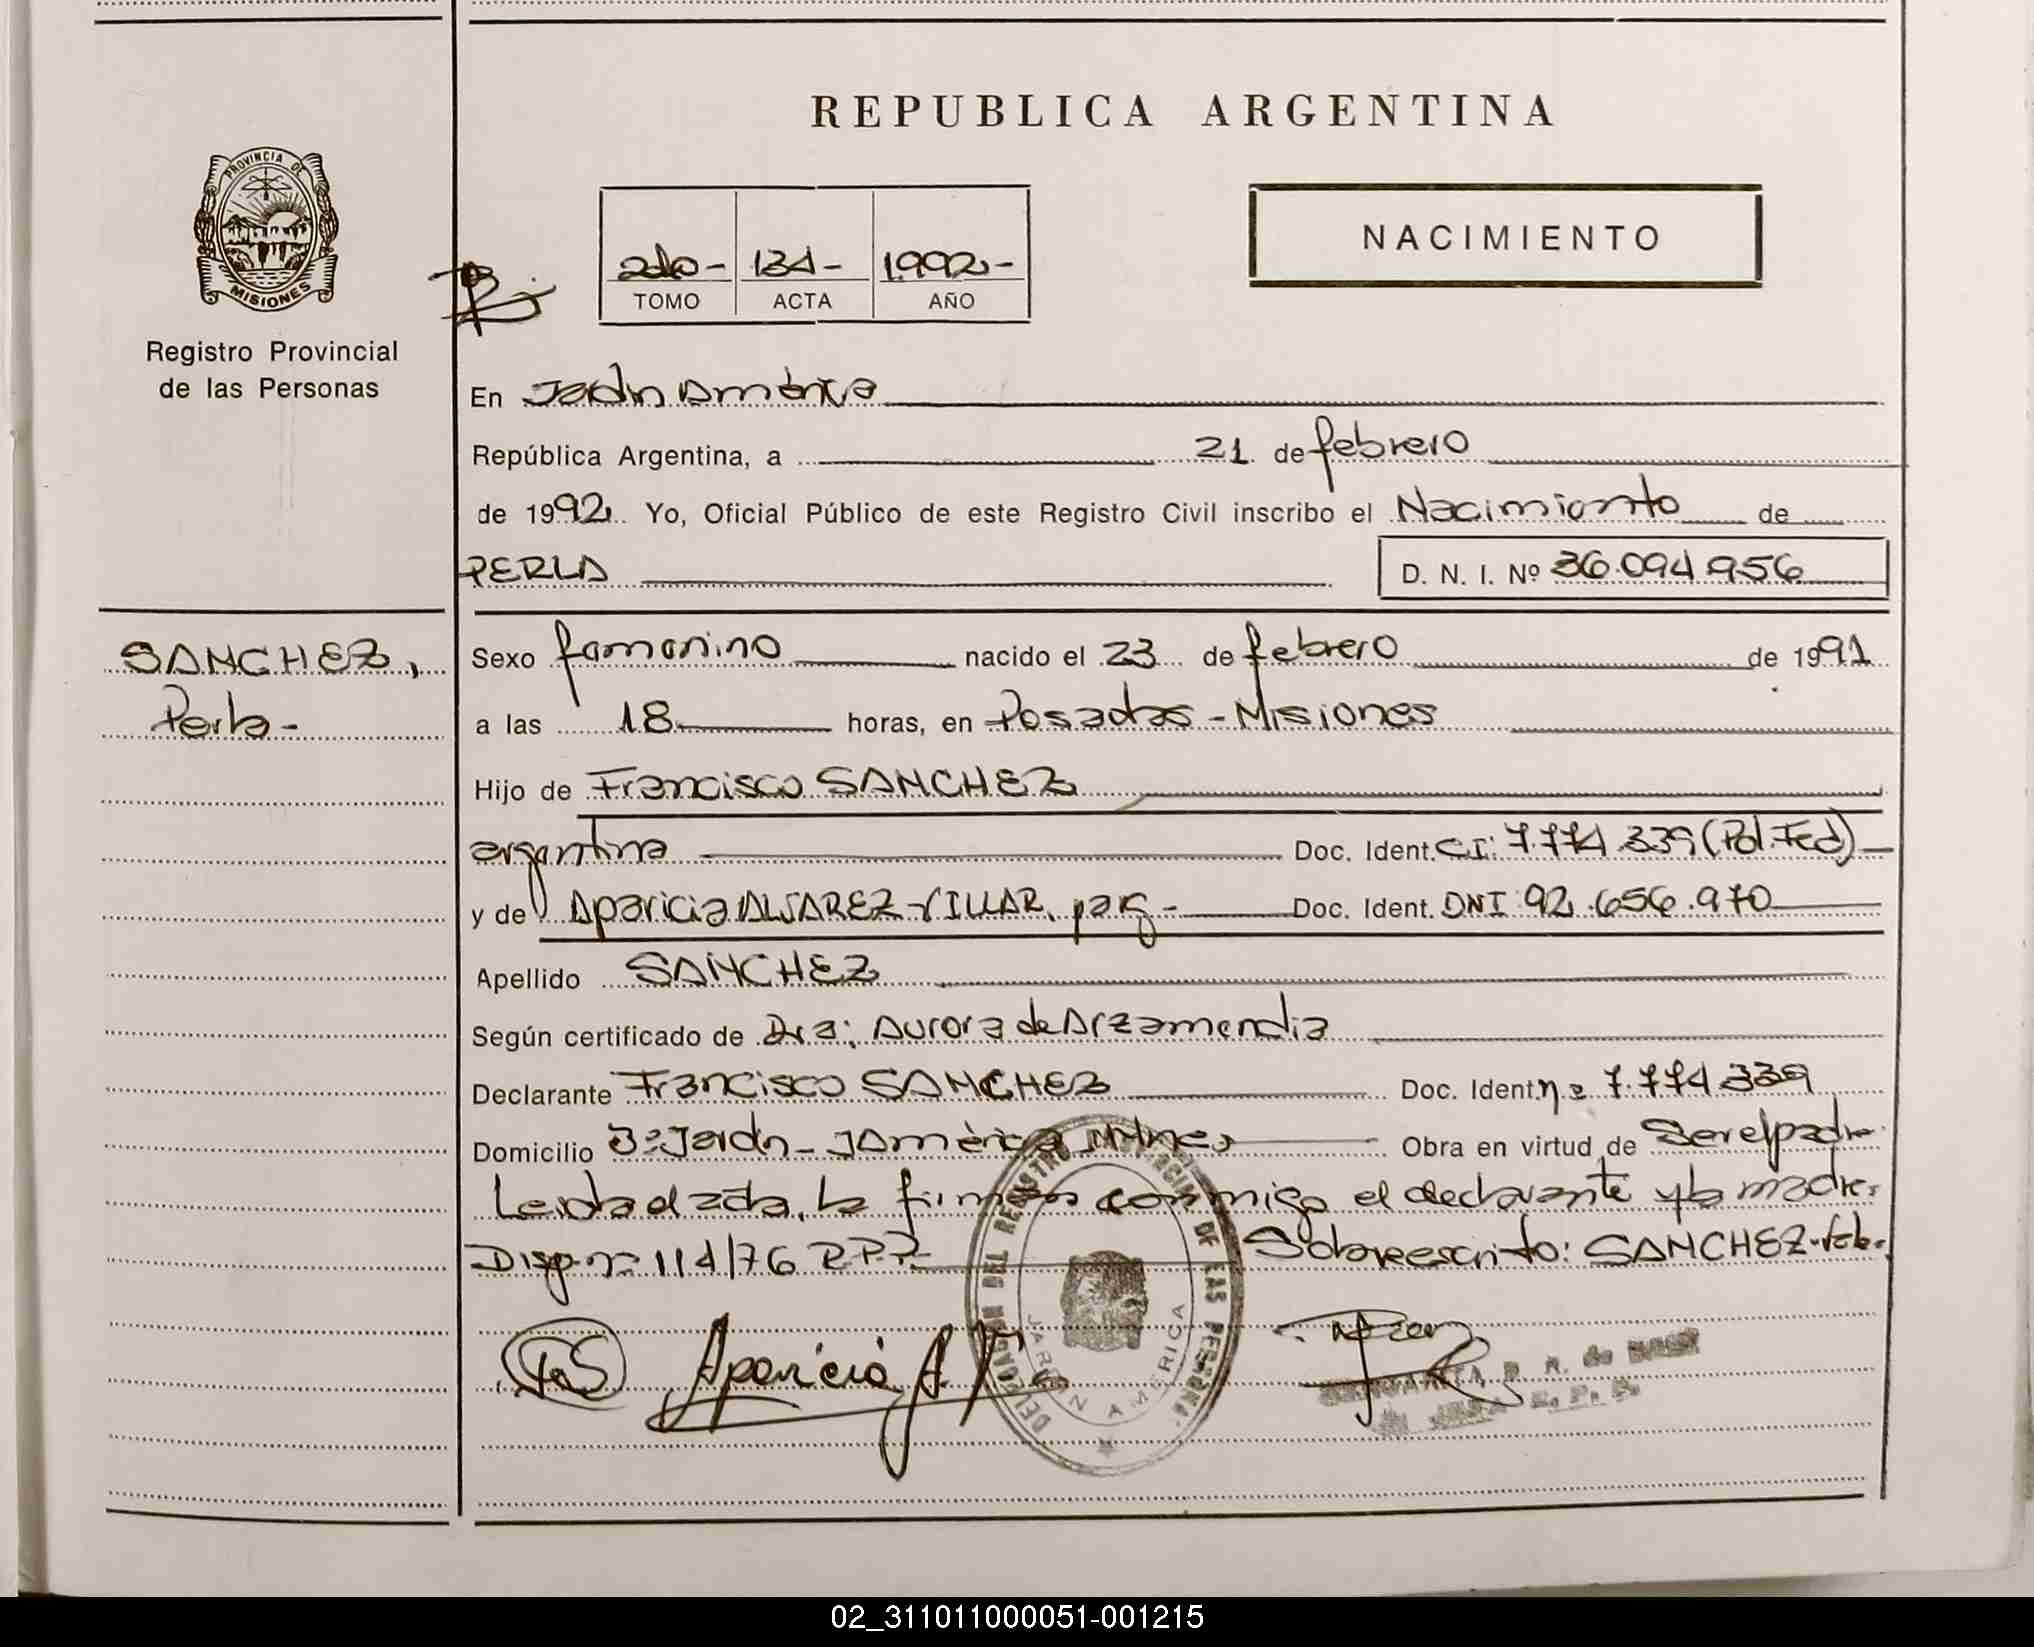 REPUBLICA ARGENTINA
PROVINCIA DE
MISIONES
Registro Provincial
de las Personas
2do- 134- 1.992.-
TOMO ACTA AÑO
NACIMIENTO
En Jardín América
República Argentina, a 21 de febrero
de 1992. Yo, Oficial Público de este Registro Civil inscribo el Nacimiento de
PERLA D. N. I. Nº 36.094.956
SANCHEZ,
Perla-
Sexo femenino nacido el 23 de febrero de 1991
a las 18 horas, en Posadas - Misiones
Hijo de Francisco SANCHEZ
argentina Doc. Ident. CI: 7.774.339 (Pol. Fed)
y de Aparicia ALVAREZ VILLAR, parg- Doc. Ident. DNI 92.656.970
Apellido SANCHEZ
Según certificado de Dra; Aurora de Arzamendia
Declarante Francisco SANCHEZ Doc. Ident. nº 7.774.339
Domicilio Bº Jardín - J América Mnes Obra en virtud de Ser el padre
Leida el acta, la firman conmigo el declarante y la madre.
Disp. nº 114/76 R.P.P. Sobreescrito: SANCHEZ-Vale.
Aparicia A. V.
DELEGACION DEL REGISTRO PROVINCIAL DE LAS PERSONAS
JARDIN AMERICA
R. de
02_311011000051-001215